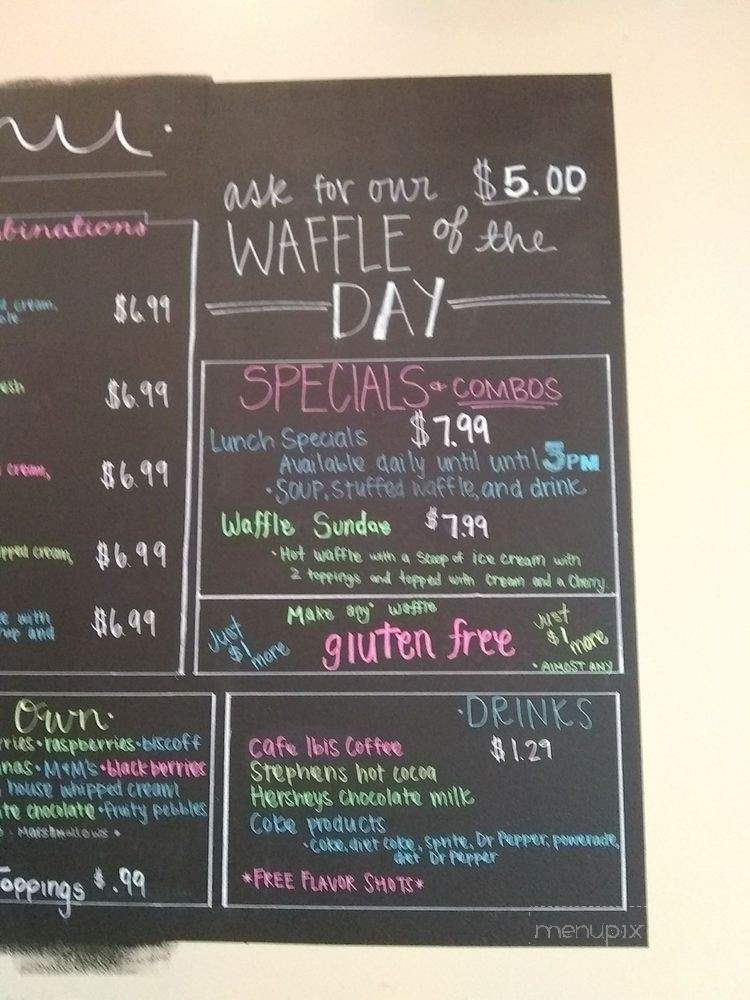 ask for our $5.00
WAFFLE of the
DAY
binations
cream, $6.99
esh $6.99
cream, $6.99
pped cream, $6.99
e with
rup and $6.99
SPECIALS & COMBOS
Lunch Specials $7.99
Available daily until until 3PM
• SOUP, Stuffed waffle, and drink
Waffle Sundae $7.99
• Hot waffle with a scoop of ice cream with
2 toppings and topped with cream and a cherry.
Make any* waffle
Just $1 more
gluten free
Just $1 more
* ALMOST ANY
Own
rries • raspberries • biscoff
nas • M&M's • blackberries
house whipped cream
te chocolate • fruity pebbles
• Marshmallows •
Toppings $.99
• DRINKS
$1.29
Cafe Ibis Coffee
Stephens hot cocoa
Hersheys chocolate milk
Coke products
• Coke, diet coke, sprite, Dr Pepper, powerade,
diet Dr Pepper
*FREE FLAVOR SHOTS*
menupix